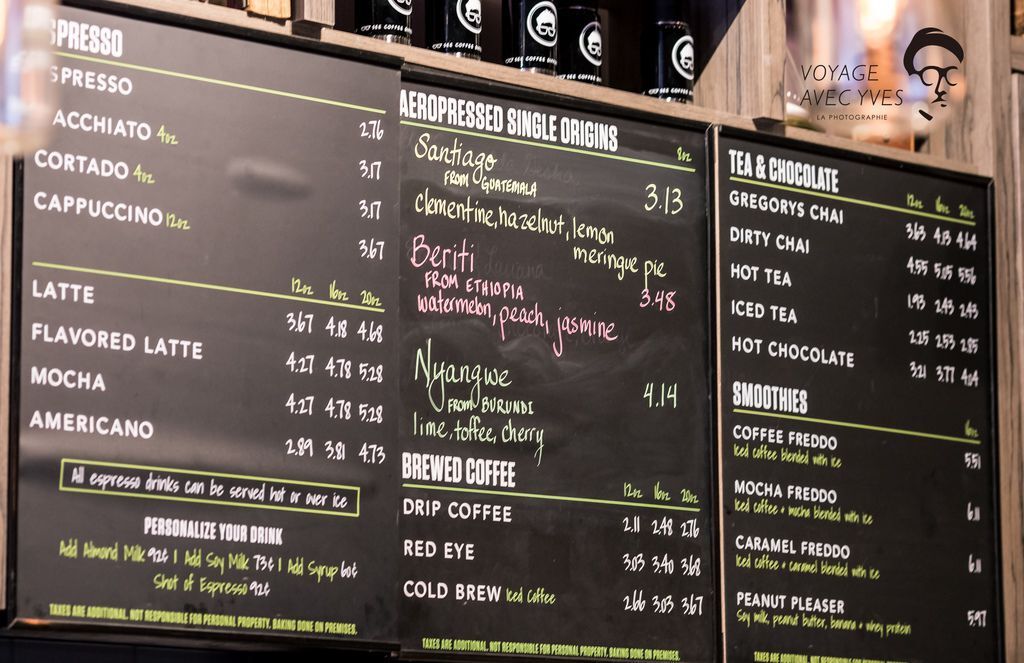 VOYAGE
AVEC YVES
LA PHOTOGRAPHIE
PRESSO
SPRESSO 2.76
ACCHIATO 4oz 3.17
CORTADO 4oz 3.17
CAPPUCCINO 12oz 3.67
12oz 16oz 20oz
LATTE 3.67 4.18 4.68
FLAVORED LATTE 4.27 4.78 5.28
MOCHA 4.27 4.78 5.28
AMERICANO 2.89 3.81 4.73
All espresso drinks can be served hot or over ice
PERSONALIZE YOUR DRINK
Add Almond Milk 92¢ | Add Soy Milk 73¢ | Add Syrup 60¢
Shot of Espresso 92¢
TAXES ARE ADDITIONAL. NOT RESPONSIBLE FOR PERSONAL PROPERTY. BAKING DONE ON PREMISES.
AEROPRESSED SINGLE ORIGINS 8oz
Santiago
FROM GUATEMALA 3.13
clementine, hazelnut, lemon
meringue pie
Beriti
FROM ETHIOPIA 3.48
watermelon, peach, jasmine
Nyangwe
FROM BURUNDI 4.14
lime, toffee, cherry
BREWED COFFEE
12oz 16oz 20oz
DRIP COFFEE 2.11 2.48 2.76
RED EYE 3.03 3.40 3.68
COLD BREW Iced Coffee 2.66 3.03 3.67
TAXES ARE ADDITIONAL. NOT RESPONSIBLE FOR PERSONAL PROPERTY. BAKING DONE ON PREMISES.
TEA & CHOCOLATE
12oz 16oz 20oz
GREGORYS CHAI 3.63 4.13 4.64
DIRTY CHAI 4.55 5.05 5.56
HOT TEA 1.93 2.43 2.43
ICED TEA 2.25 2.53 2.85
HOT CHOCOLATE 3.21 3.77 4.04
SMOOTHIES
16oz
COFFEE FREDDO 5.51
Iced coffee blended with ice
MOCHA FREDDO 6.11
Iced coffee + mocha blended with ice
CARAMEL FREDDO 6.11
Iced coffee + caramel blended with ice
PEANUT PLEASER 5.97
Soy milk, peanut butter, banana + whey protein
TAXES ARE ADDITIONAL. NOT RESPONSIBLE FOR PERSONAL PROPERTY. BAKING DONE ON PREMISES.